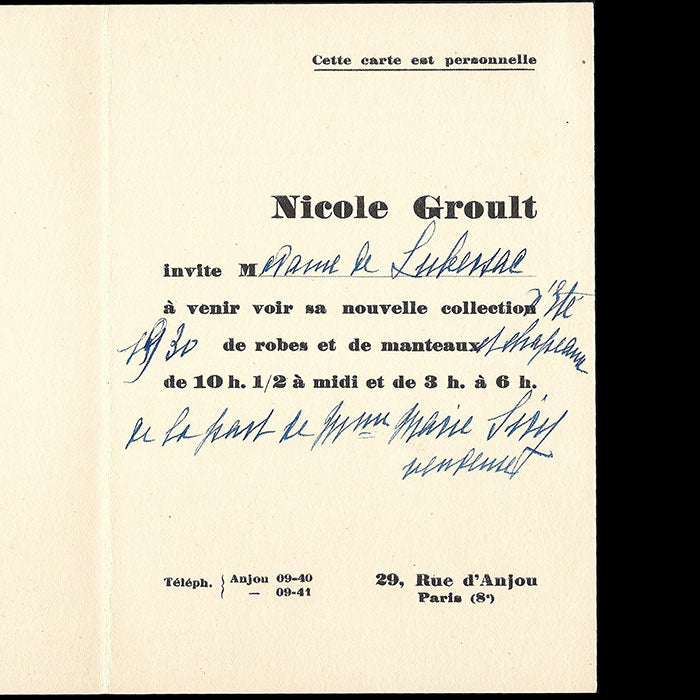 Cette carte est personnelle
Nicole Groult
invite Madame de Lubersac
à venir voir sa nouvelle collection d'Eté
1930 de robes et de manteaux et chapeaux
de 10 h. 1/2 à midi et de 3 h. à 6 h.
de la part de Mme Marie
vendeuse
Téléph. { Anjou 09-40
— 09-41
29, Rue d'Anjou
Paris (8e)